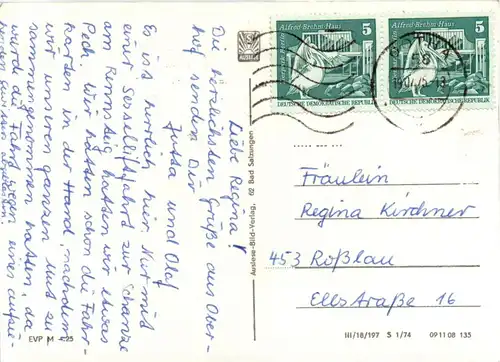 Liebe Regina!
Die herzlichsten Grüße aus Ober-
hof senden Dir
Jutta und Olaf
Es ist herrlich hier. Nur mit
einer Sesselliftfahrt zur Schanze
am Rennsteig hatten wir etwas
Pech. Wir hatten schon die Fahr-
karten in der Hand, nachdem
wir unseren ganzen Mut zu-
sammengenommen hatten, da
wurde die Fahrt wegen eines aufzie-
henden
EVP M -.25
Auslese-Bild-Verlag, 62 Bad Salzungen
AUSLESE
Alfred-Brehm-Haus 5
Tierpark Berlin
DEUTSCHE DEMOKRATISCHE REPUBLIK
Alfred-Brehm-Haus 5
DEUTSCHE DEMOKRATISCHE REPUBLIK
Fräulein
Regina Kirchner
453 Roßlau
Ellstraße 16
III/18/197 S 1/74 09 11 08 135